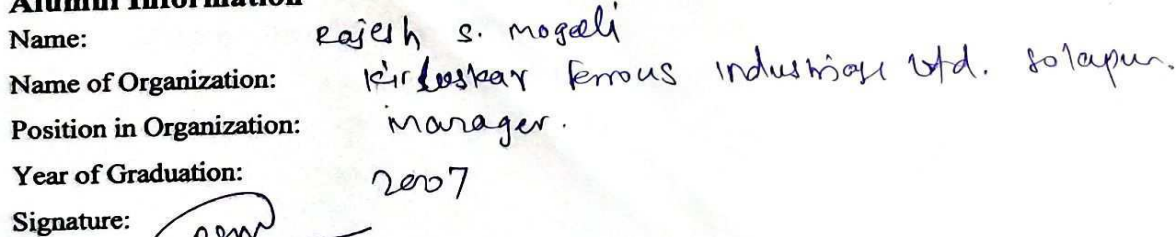 Alumni Information
Name: Rajesh S. Mogali
Name of Organization: Kirloskar Ferrous Industries Ltd. Solapur.
Position in Organization: Manager.
Year of Graduation: 2007
Signature: